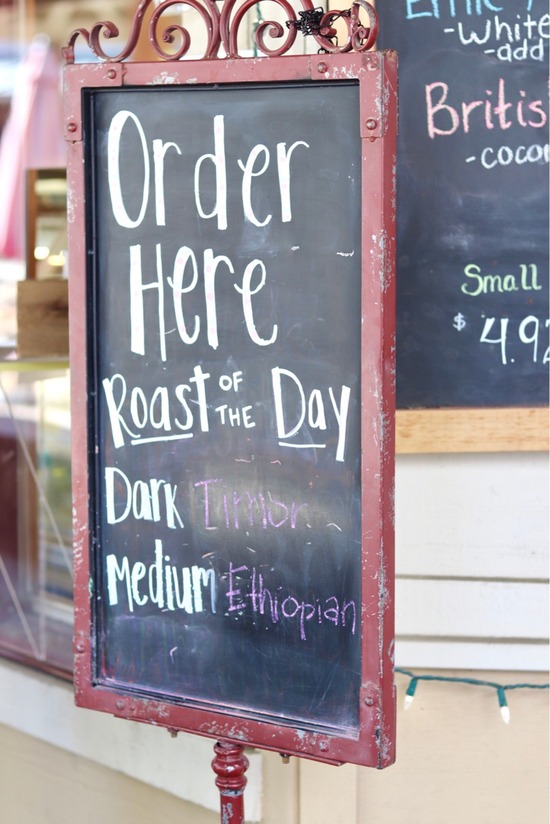 Order
Here
Roast OF THE Day
Dark Timor
Medium Ethiopian
-white
-add
British
Small
$4.92